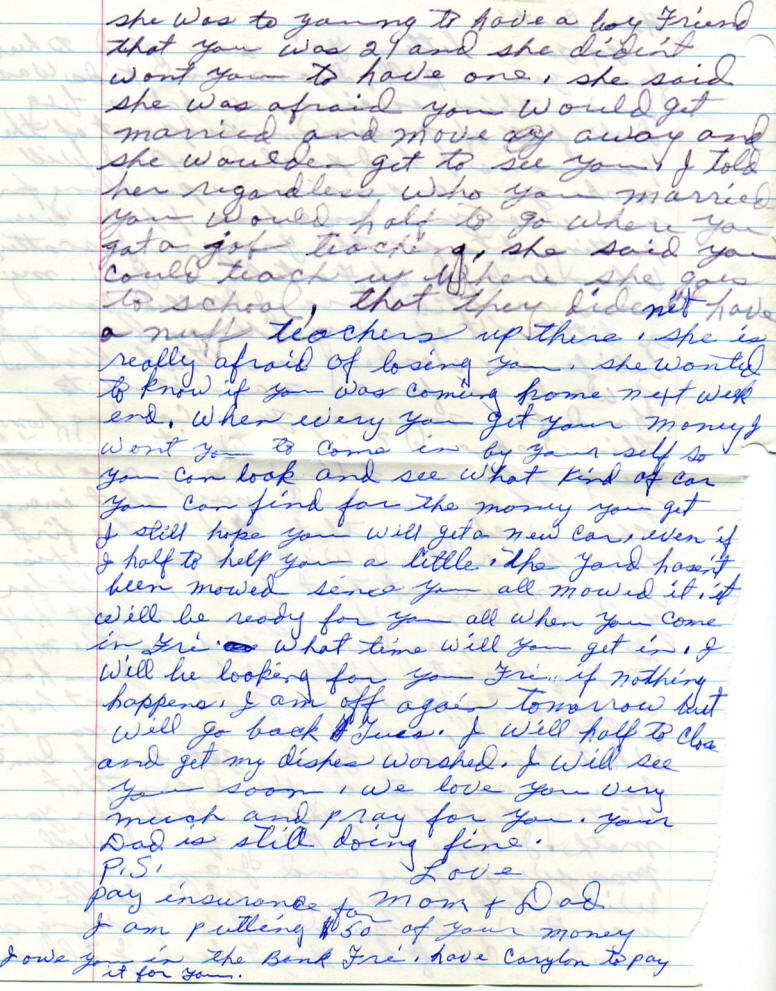 she was to young to have a boy Friend
that you was 21 and she dident
wont you to have one, she said
she was afraid you would get
married and move away and
she woulden get to see you. I told
her regardless who you married
you would half to go where you
got a job teaching, she said you
could teach up where she goes
to school, that they dident have
a nuff teachers up there. she is
really afraid of losing you. she wonted
to know if you was coming home next week
end. When every you get your money I
wont you to come in by your self so
you can look and see what kind of car
you can find for the money you get
I still hope you will get a new car, even if
I half to help you a little. The yard hasent
been mowed sence you all mowed it, it
will be ready for you all when you come
in Fri. What time will you get in. I
will be looking for you Fri. if nothing
happens. I am off again tomorrow but
will go back Tues. I will half to close
and get my dishes worshed. I will see
you soon, we love you very
much and pray for you. your
Dad is still doing fine.
P.S. Love
pay insurance for Mom & Dad
I am putting $50 of your money
I owe you in the Bank Fri. have Carylon to pay
it for you.